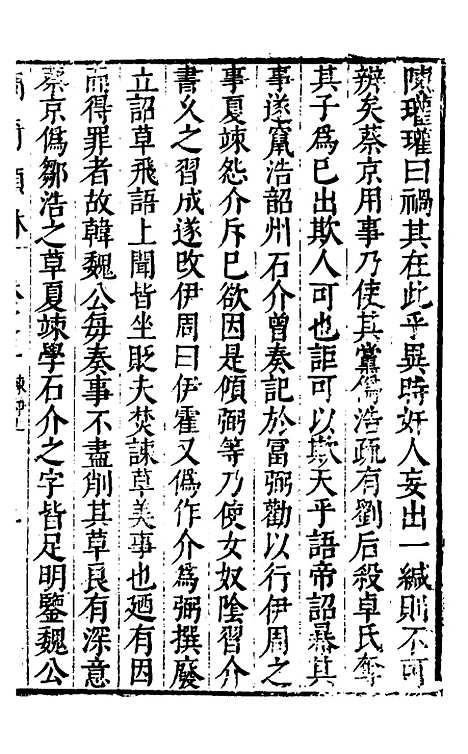 陳瓘瓘曰禍其在此乎異時奸人妄出一緘則不可
辨矣蔡京用事乃使其黨僞浩疏有劉后殺卓氏奪
其子為已出欺人可也詎可以欺天乎語帝詔暴其
事遂竄浩韶州石介曾奏記於富弼勸以行伊周之
事夏竦怨介斥已欲因是傾弼等乃使女奴陰習介
書乆之習成遂改伊周曰伊霍又僞作介為弼撰廢
立詔草飛語上聞皆坐貶夫焚諫草美事也廼有因
而得罪者故韓魏公每奏事不盡削其草良有深意
蔡京僞鄒浩之草夏竦學石介之字皆足明鑒魏公